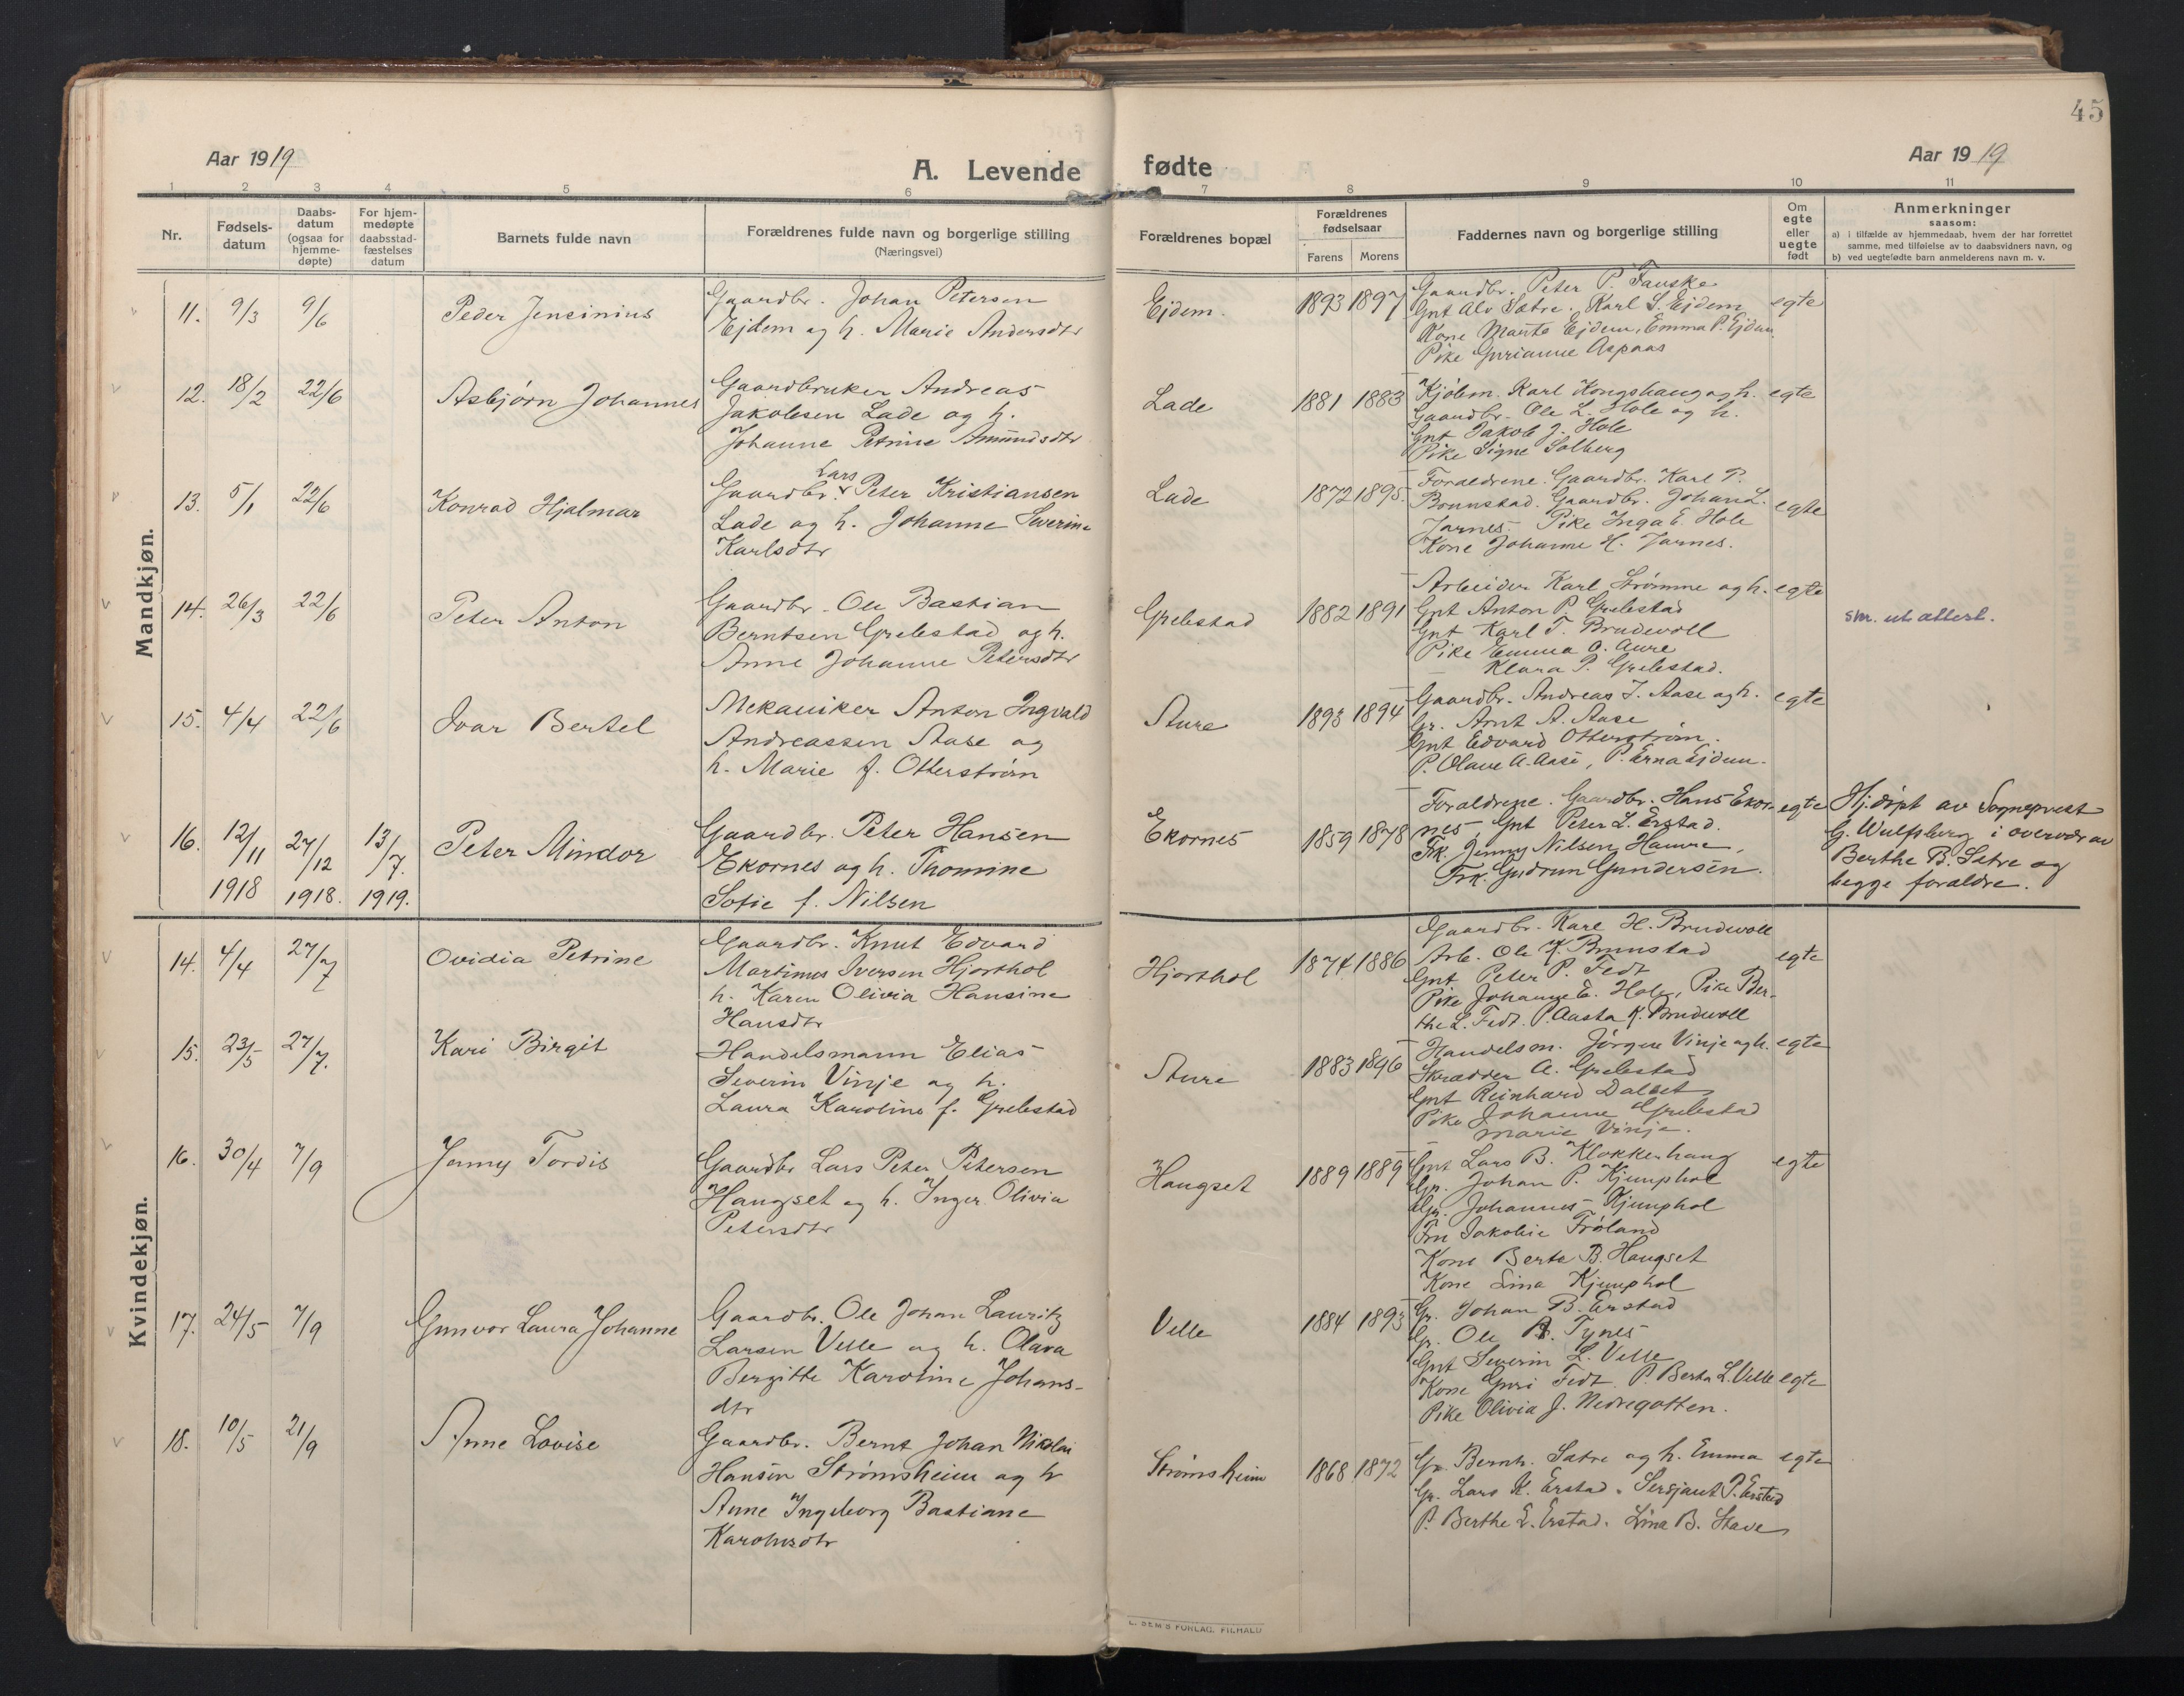 45
Aar 1919
A. Levende fødte
Aar 1919
1 2 3 4 5 6 7 8 9 10 11
Nr.
Fødsels-
datum
Daabs-
datum
(ogsaa for
hjemme-
døpte)
For hjem-
medøpte
daabsstad-
fæstelses
datum
Barnets fulde navn
Forældrenes fulde navn og borgerlige stilling
(Næringsvei)
Forældrenes bopæl
Forældrenes
fødselsaar
Farens Morens
Faddernes navn og borgerlige stilling
Om
egte
eller
uegte
født
Anmerkninger
saasom:
a) i tilfælde av hjemmedaab, hvem der har forrettet
samme, med tilføielse av to daabsvidners navn, og
b) ved uegtefødte barn anmelderens navn m. v.
Mandkjøn.
11. 9/3 9/6
Peder Jensinius
Gaardbr. Johan Petersen
Ejdem og h. Marie Andersdtr
Ejdem.
1893 1897
Gaardbr. Peter P. Fauske
Gnt Alv Sætre. Karl S. Ejdem
Kone Marite Ejdem, Emma P. Ejdem
Pike Gurianne Aspaas
egte
12. 18/2 22/6
Asbjørn Johannes
Gaardbruker Andreas
Jakobsen Lade og h.
Johanne Petrine Amundsdtr
Lade
1881 1883
Kjøbm. Karl Kongshaug og h.
Gaardbr. Ole L. Hole og h.
Gnt Jakob J. Hole
Pike Signe Solberg
egte
13. 5/1 22/6
Konrad Hjalmar
Lars
Gaardbr. Peter Kristiansen
Lade og h. Johanne Severine
Karlsdtr
Lade
1872 1895
Foraldrene. Gaardbr. Karl P.
Brunstad. Gaardbr. Johan L.
Jarnes. Pike Inga E. Hole
Kone Johanne H. Jarnes.
egte
14. 26/3 22/6
Peter Anton
Gaardbr. Ole Bastian
Berntsen Grebstad og h.
Anne Johanne Petersdtr
Grebstad
1882 1891
Arbeider Karl Strømme og h.
Gnt Anton P. Grebstad
Gnt Karl T. Brudevoll
Pike Emma O. Aure
— Klara P. Grebstad.
egte
sm. ut attest.
15. 4/4 22/6
Ivar Bertel
Mekaniker Anton Ingvald
Andreassen Aase og
h. Marie f. Otterstrøm
Aure
1893 1894
Gaardbr. Andreas I. Aase og h.
Gr. Arnt A. Aase
Gnt Edvard Otterstrøm.
P. Olave A. Aase, P. Erna Ejdem.
egte
16. 12/11 1918 27/12 1918. 13/7. 1919.
Peter Mindor
Gaardbr. Peter Hansen
Ekornes og h. Thomine
Sofie f. Nilsen
Ekornes
1859 1878
Foraldrene. Gaardbr. Hans Ekor-
nes, Gnt Peter L. Erstad.
Frk. Jenny Nilsen Hamre,
Frk. Gudrun Gundersen.
egte
Hj.døpt av Sogneprest
G. Wulfsberg i overvær av
Berthe B. Satre og
begge foraldre.
Kvindekjøn.
14. 4/4 27/7
Ovidia Petrine
Gaardbr. Knut Edvard
Martinus Iversen Hjorthol
h. Karen Olivia Hansine
Hansdtr
Hjorthol
1874 1886
Gaardbr. Karl H. Brudevoll
Arb. Ole K. Brunstad
Gnt Peter P. Fedt
Pike Johanne E. Hole, Pike Ber-
the L. Fedt. P. Aasta K. Brudevoll
egte
15. 23/5 27/7.
Kari Birgit
Handelsmann Elias
Severin Vinje og h.
Laura Karoline f. Grebstad
Aure
1883 1896
Handelsm. Jørgen Vinje og h.
Skrædder A. Grebstad
Gnt Reinhard Dalset
Pike Johanne Grebstad
Marie Vinje.
egte
16. 30/4 7/9
Jenny Tordis
Gaardbr Lars Peter Petersen
Haugset og h. Inger Olivia
Petersdtr
Haugset
1889 1889
Gnt Lars B. Klokkerhaug
Gr. Johan P. Kjemphol
Gr. Johannes Kjemphol
Fru Jakobie Frøland
Kone Berte B. Haugset
Kone Lina Kjemphol
egte
17. 24/5 7/9
Gunvor Laura Johanne
Gaardbr. Ole Johan Lauritz
Larsen Velle og h. Olava
Bergitte Karoline Johans-
dtr
Velle
1884 1893
Gr. Johan B. Erstad
Gr. Ole B. Tynes
Gnt Severin L. Velle
Kone Guri Fedt. P. Berta L. Velle
Pike Olivia J. Nedregotten.
egte
18. 10/5 21/9
Anne Lovise
Gaardbr. Bernt Johan Nikolai
Hansen Strømsheim og h
Anne Ingeborg Bastiane
Karolusdtr
Strømsheim
1868 1872
Gr. Bernh. Satre og h. Emma
Gr. Lars K. Erstad. Sersjant P. Erstad
P. Berthe E. Erstad. Lina B. Stave
egte
E. SEM'S FORLAG, F.HALD